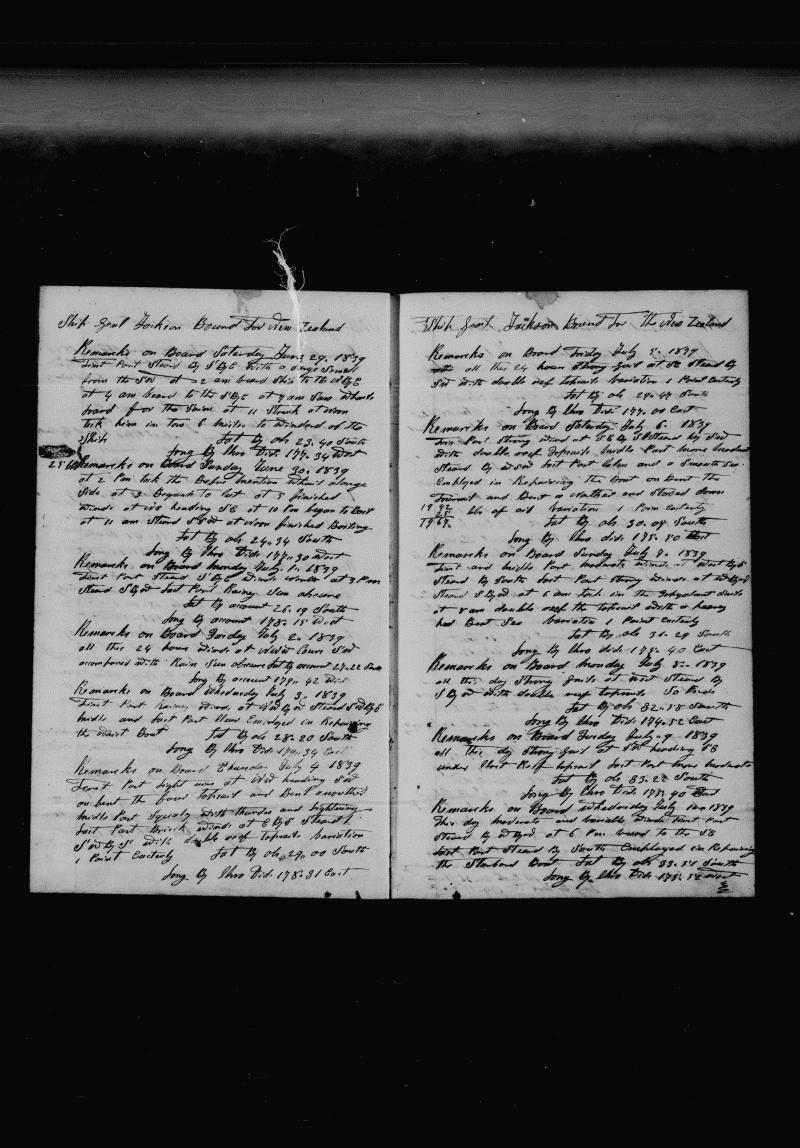 Ship Genl Jackson Bound for New Zealand
Remarks on Board Saturday June 29. 1839
First Part Steard By S By E With a large Smell
from the SW at 2 am beard Ship to the N By E
at 4 am beard to the S By E at 7 am Saw Whails
loard for the Same at 11 Struck at noon
tuck him in tow 6 miles to windard of the
Ship Lat By obs 23.40 South
Long By Chro Dist 177.34 West
Remarks on Board Sunday June 30. 1839
at 2 Pm tuck the Before mention Whail alonge
Side at 3 Begunto Cut at 5 finished
winds at heading SE at 10 Pm began to Boil
at 11 am Steard SSW at noon finished Boiling
Lat By obs 24.34 South
Long By Chro Dist 177.30 West
Remarks on Board Monday July 1. 1839
First Part Steard S By E winds at 8 Pm
Steard S By W Last Part Rainey Sun obscure
Lat By account 26.19 South
Long By account 178.15 West
Remarks on Board Tusday July 2. 1839
all this 24 hours winds at NNW Cours SW
acompaned with Rain Sun obscure Lat By account 27.22 South
Long By account 179.42 West
Remarks on Board Whedsday July 3. 1839
First Part Rainey winds at W By W Steard SW By S
midle and Last Part Clear Emploged in Repairing
the Waist Boat Lat By obs 28.20 South
Long By Chro Dist 179.34 East
Remarks on Board Thursday July 4 1839
First Part light wind at heading SW
on bent the four topsail and Bent another
midle Part Squaly with thunder and lightning
Last Part Brisk winds at E By S Steard
SW By S with double reef topsails Variation
1 Point Easterly Lat By obs 29.00 South
Long By Chro Dist 178.31 East
Ship Genl Jackson Bound for The New Zealand
Remarks on Board Friday July 5. 1839
all this 24 hours Strong gail at SE Steard By
SW with double reef topsails Variation 1 Point Easterly
Lat By obs 29.47 South
Long By Chro Dist 177.00 East
Remarks on Board Saturday July 6. 1839
First Part Strong wind at SE By S Steard By SW
With double reef Topsails midle Part more modrat
Steard By WSW Last Part Calm and a Smooth Sea
Emploged in Repairing the Boat on Bent the
and Bent a nother and Stoad down
19 42 bls of oil Variation 1 Point Easterly
25
1967. Lat By obs 30.08 South
Long By Chro dist 175.50 East
Remarks on Board Sunday July 7. 1839
First and midle Part moderate winds at West By S
Steard By South Last Part Strong winds at W By W
Steard S By W at 6 am tuck in the Sails
at 8 am double reef the topsail with a heavy
hed Beat Sea Variation 1 Point Easterly
Lat By obs 31.29 South
Long By Chro dist 175.40 East
Remarks on Board Monday July 8. 1839
all this day Strong Gails at West Steard By
S By W with double reef topsails So Ends
Lat By obs 32.58 South
Long By Chro Dist 174.52 East
Remarks on Board Tusday July 9 1839
all this day Strong Gail at SW heading SE
under Close Reef topsail Last Part more moderate
Lat By obs 33.22 South
Long By Chro Dist 175.40 East
Remarks on Board Whedsday July 10. 1839
This day moderate and Variable winds First Part
Steard By W By W. at 6 Pm weard to the SE
Last Part Steard By South Emploged in Repairing
the Starbord Boat Lat By obs 33.51 South
Long By Chro Dist 175.52 West